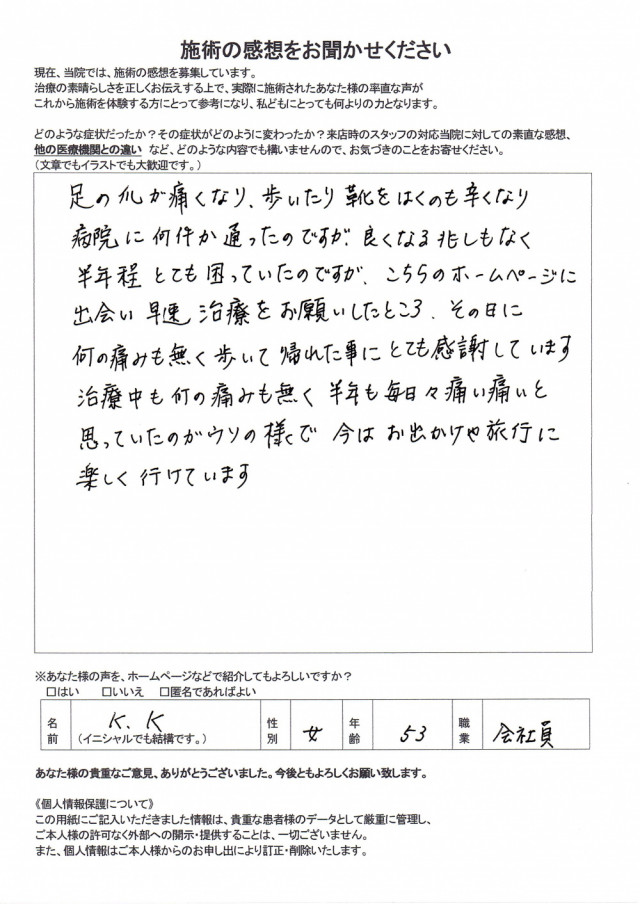 施術の感想をお聞かせください
現在、当院では、施術の感想を募集しています。
治療の素晴らしさを正しくお伝えする上で、実際に施術されたあなた様の率直な声が
これから施術を体験する方にとって参考になり、私どもにとっても何よりの力となります。
どのような症状だったか？その症状がどのように変わったか？来店時のスタッフの対応当院に対しての素直な感想、
他の医療機関との違い など、どのような内容でも構いませんので、お気づきのことをお寄せください。
（文章でもイラストでも大歓迎です。）
足の爪が痛くなり、歩いたり靴をはくのも辛くなり
病院に何件か通ったのですが、良くなる兆しもなく
半年程とても困っていたのですが、こちらのホームページに
出会い早速治療をお願いしたところ、その日に
何の痛みも無く歩いて帰れた事にとても感謝しています
治療中も何の痛みも無く半年も毎日々痛い痛いと
思っていたのがウソの様で今はお出かけや旅行に
楽しく行けています
※あなた様の声を、ホームページなどで紹介してもよろしいですか？
□はい □いいえ □匿名であればよい
名前 K.K （イニシャルでも結構です。） 性別 女 年齢 53 職業 会社員
あなた様の貴重なご意見、ありがとうございました。今後ともよろしくお願い致します。
《個人情報保護について》
この用紙にご記入いただきました情報は、貴重な患者様のデータとして厳重に管理し、
ご本人様の許可なく外部への開示・提供することは、一切ございません。
また、個人情報はご本人様からのお申し出により訂正・削除いたします。